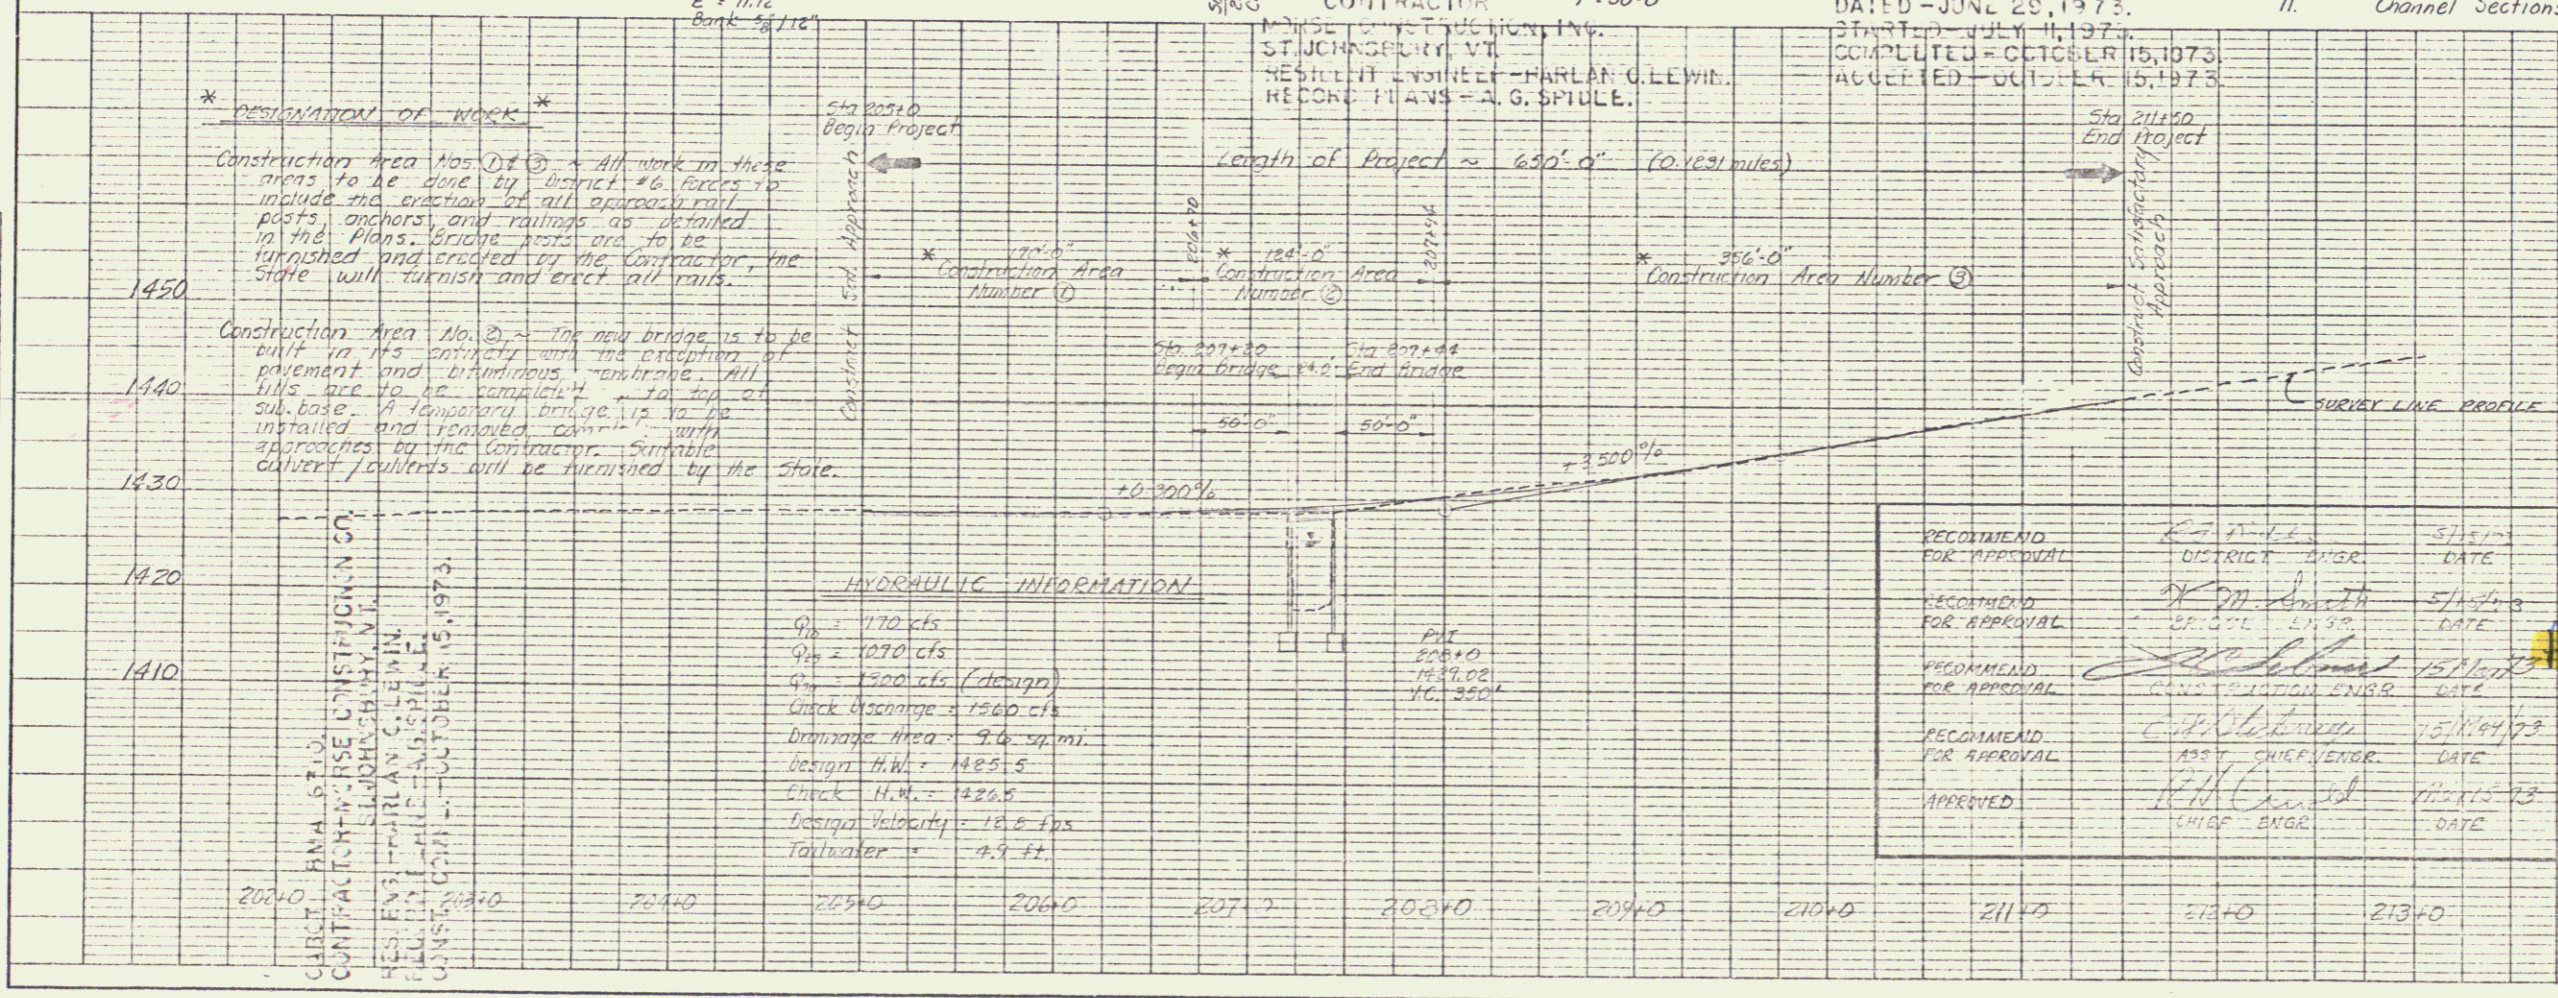 E = 11.12
Bank 5/8"/12"
CONTRACTOR
MORSE CONSTRUCTION, INC.
ST. JOHNSBURY, VT.
RESIDENT ENGINEER - HARLAN C. LEWIN.
RECORD PLANS - A. G. SPIDLE.
DATED - JUNE 29, 1973.
STARTED - JULY 11, 1973.
COMPLETED - OCTOBER 15, 1973.
ACCEPTED - OCTOBER 15, 1973.
11. Channel Sections
* DESIGNATION OF WORK *
Construction Area Nos. ① & ③ ~ All work in these
areas to be done by District #6 Forces to
include the erection of all approach rail
posts, anchors, and railings as detailed
in the Plans. Bridge posts are to be
furnished and erected by the Contractor, the
State will furnish and erect all rails.
Construction Area No. ② ~ The new bridge is to be
built in its entirety with the exception of
pavement and bituminous membrane. All
fills are to be completed to top of
sub.base. A temporary bridge is to be
installed and removed with
approaches by the Contractor. Suitable
culvert / culverts will be furnished by the State.
Sta 205+0
Begin Project
Length of Project ~ 650'-0" (0.1231 miles)
Sta 211+50
End Project
Construct Sat. Approach
* 170'-0"
Construction Area
Number ①
206+70
* 124'-0"
Construction Area
Number ②
207+94
* 356'-0"
Construction Area Number ③
Construct Satisfactory
Approach
Sta. 207+20
Begin Bridge
24.0'
Sta 207+44
End Bridge
50'-0"
50'-0"
+0.300%
+3.500%
SURVEY LINE PROFILE
1450
1440
1430
1420
1410
HYDRAULIC INFORMATION
Q10 = 770 cfs
Q25 = 1070 cfs
Q50 = 1300 cfs (design)
Check Discharge = 1560 cfs
Drainage Area = 9.6 sq.mi.
Design H.W. = 1425.5
Check H.W. = 1426.5
Design Velocity = 12.8 fps
Tailwater = 4.9 ft.
PVI
208+0
1429.02
V.C. 350'
RECOMMEND
FOR APPROVAL
DISTRICT ENGR.
5/15/73
DATE
RECOMMEND
FOR APPROVAL
Smith
ENGR.
5/15/73
DATE
RECOMMEND
FOR APPROVAL
CONSTRUCTION ENGR
15/May/73
DATE
RECOMMEND
FOR APPROVAL
ASS'T CHIEF ENGR.
15/May/73
DATE
APPROVED
CHIEF ENGR.
May 15 73
DATE
CABOT
CONTRACTOR - MORSE CONSTRUCTION CO.
ST. JOHNSBURY, VT.
RES. ENG. - HARLAN C. LEWIN.
A.G. SPIDLE.
OCTOBER 15, 1973.
202+0 203+0 204+0 205+0 206+0 207+0 208+0 209+0 210+0 211+0 212+0 213+0